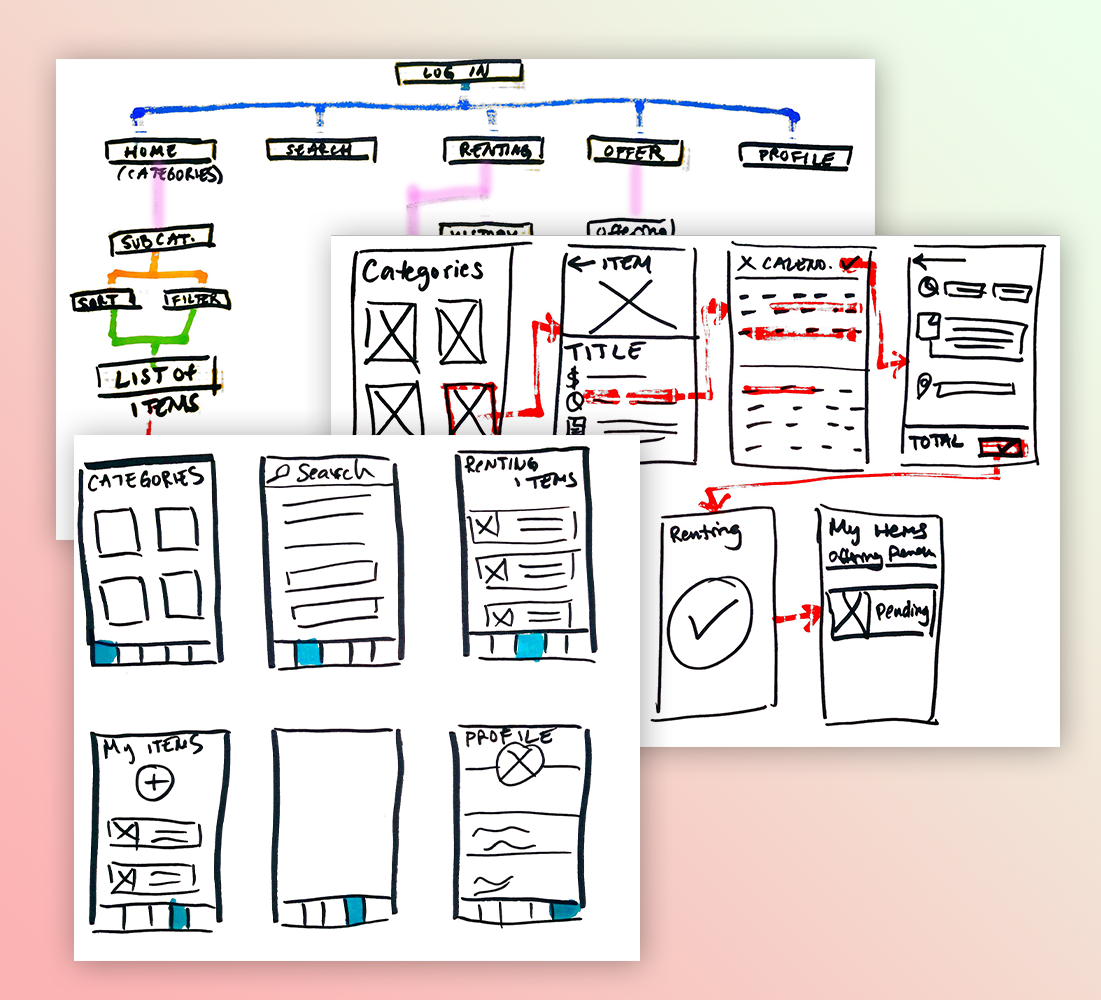 LOG IN
HOME
(CATEGORIES)
SEARCH
RENTING
OFFER
PROFILE
SUBCAT.
SORT
FILTER
LIST OF
ITEMS
HISTORY
Offering
Categories
ITEM
TITLE
$
X CALEND.
TOTAL
Renting
My Items
Offering
Pending
CATEGORIES
Search
RENTING
ITEMS
My ITEMS
PROFILE